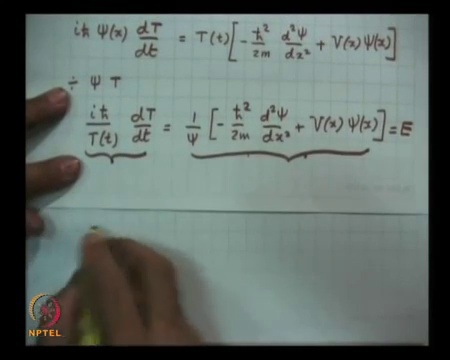 iħ Ψ(x) dT/dt = T(t) [-ħ²/2m d²Ψ/dx² + V(x) Ψ(x)]
÷ Ψ T
iħ/T(t) dT/dt = 1/Ψ [-ħ²/2m d²Ψ/dx² + V(x) Ψ(x)] = E
NPTEL